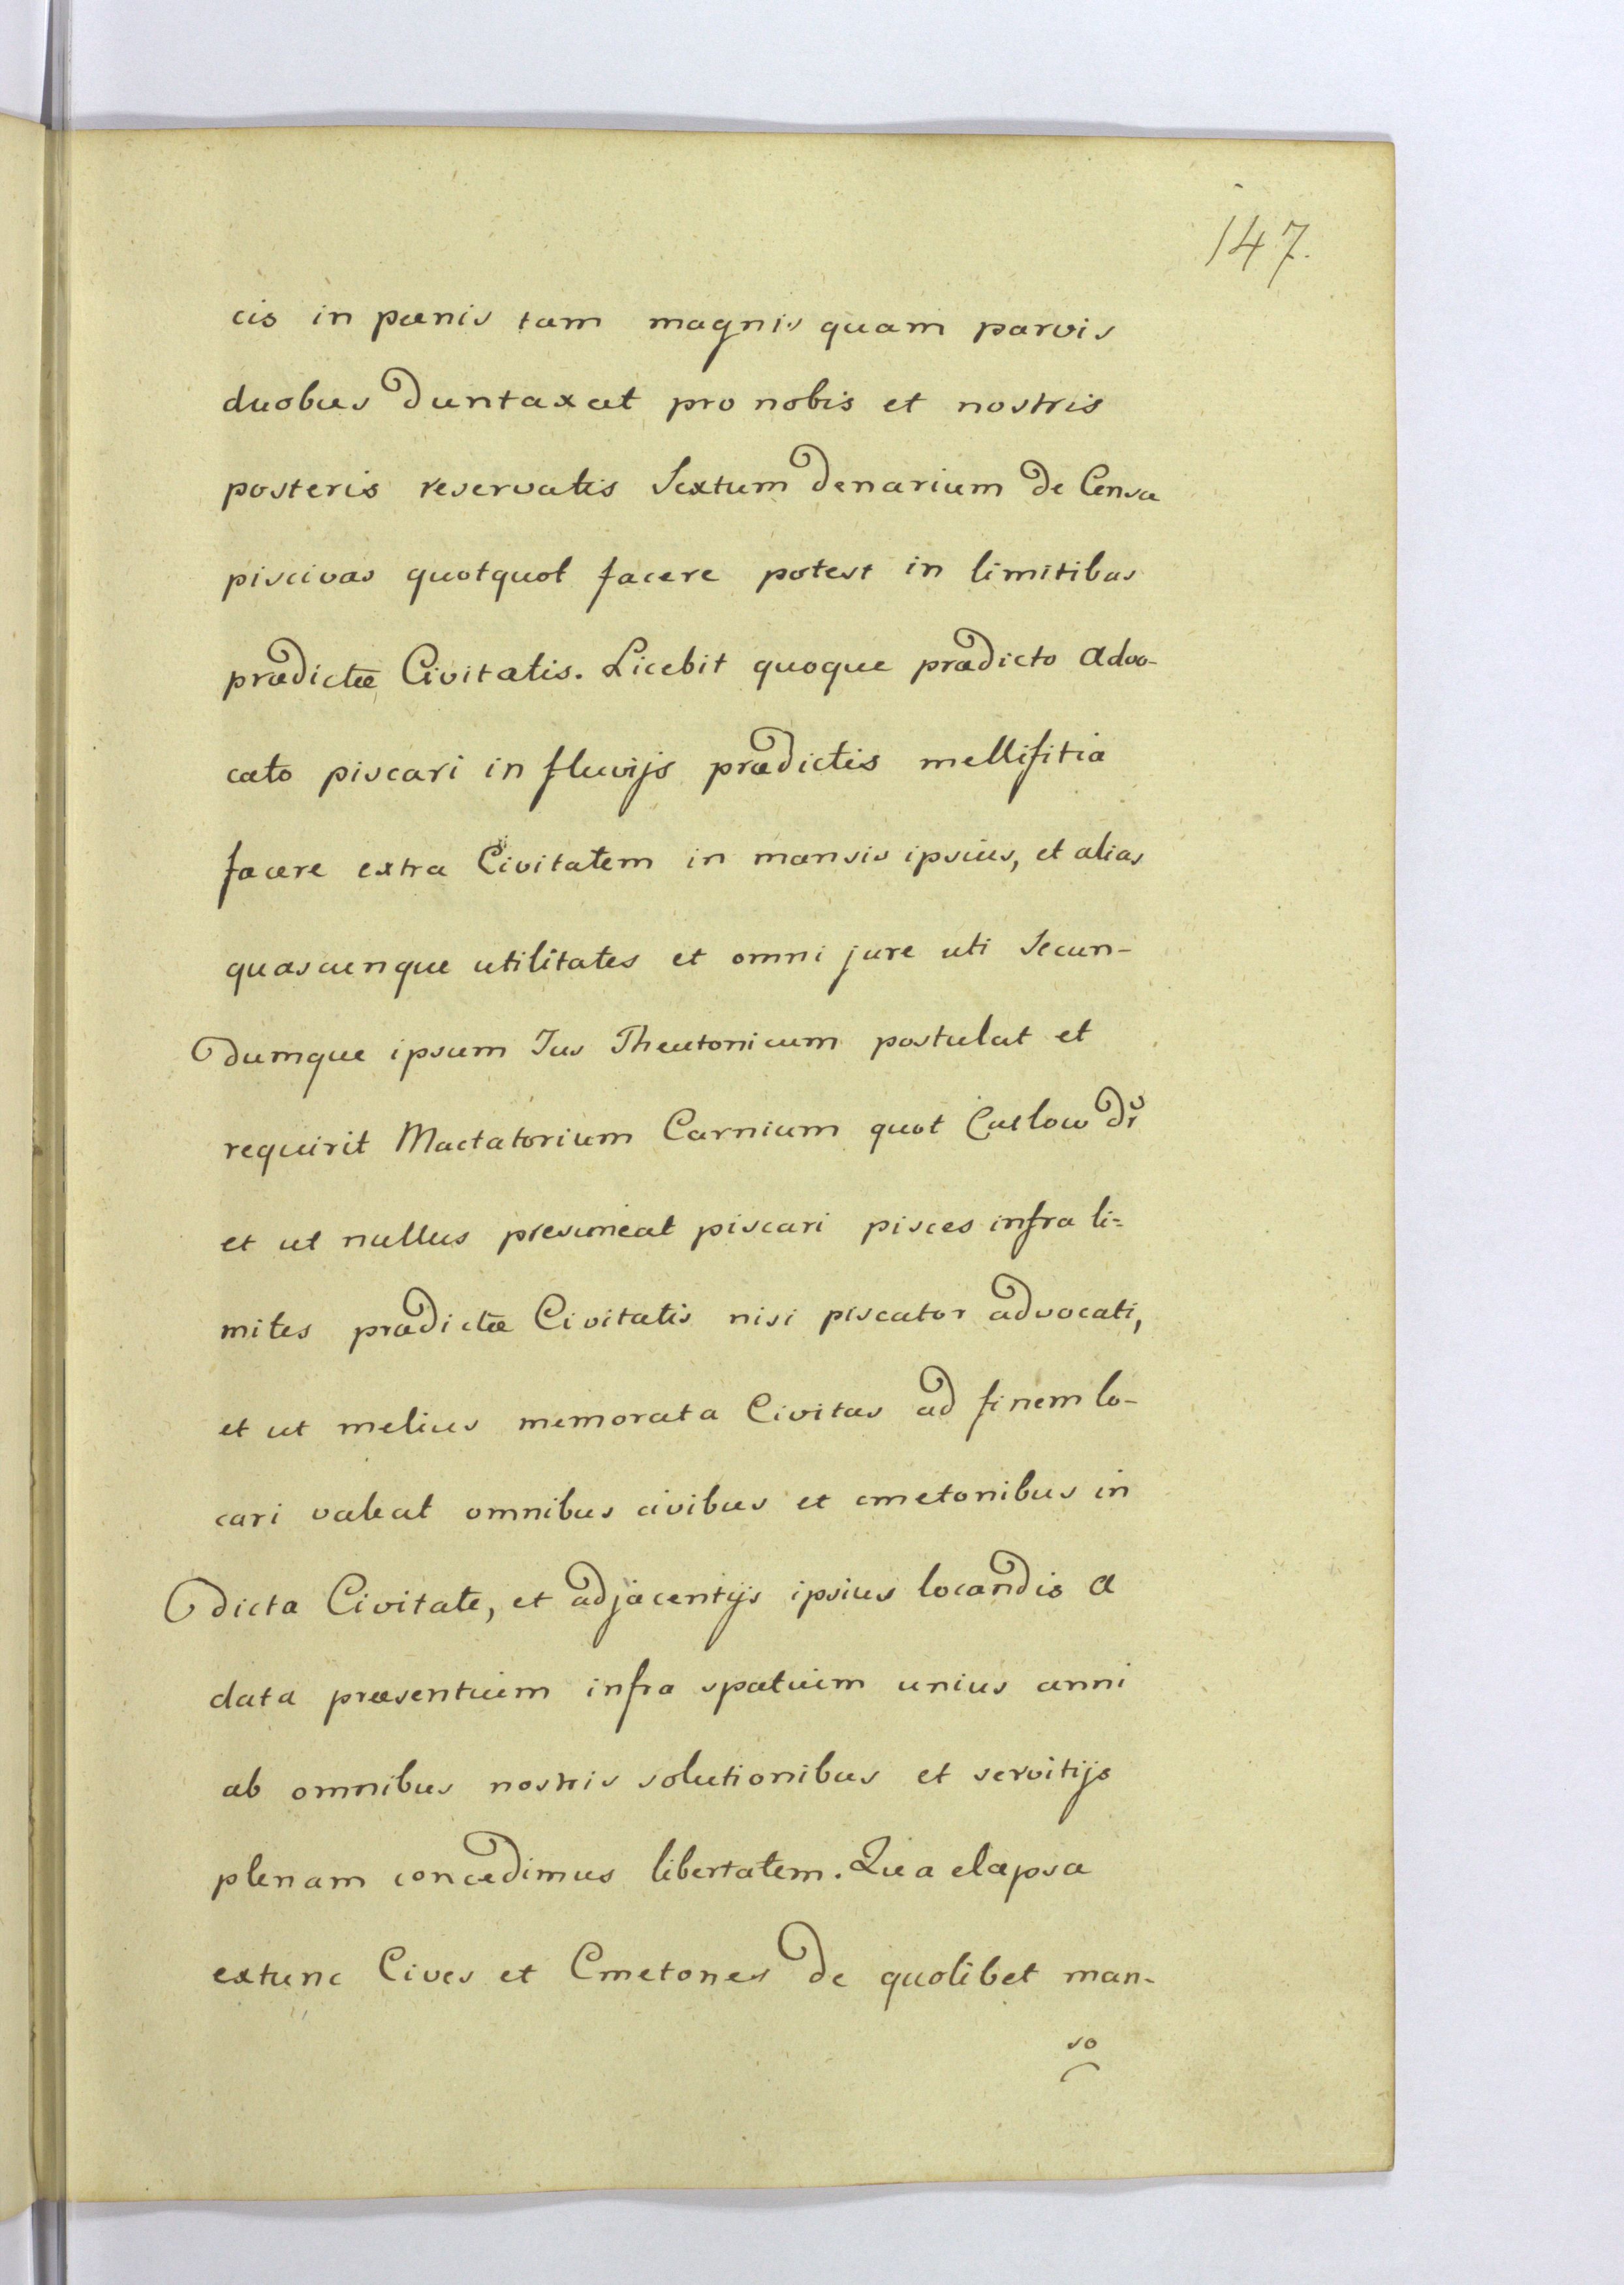 147.
cis in pœnis tam magnis quam parvis
duobus duntaxat pro nobis et nostris
posteris reservatis Sextum denarium de Censu
piscivas quotquot facere potest in limitibus
prædictæ Civitatis. Licebit quoque prædicto Advo-
cato piscari in fluvijs prædictis mellifitia
facere extra Civitatem in mansis ipsius, et alias
quascunque utilitates et omni jure uti Secun-
dumque ipsum Jus Theutonicum postulat et
requirit Mactatorium Carnium quot Cutlow dr
et ut nullus presumeat piscari pisces infra li=
mites prædictæ Civitatis nisi piscator advocati,
et ut melius memorata Civitas ad finem lo-
cari valeat omnibus civibus et cmetonibus in
dicta Civitate, et adjacentijs ipsius locandis a
data præsentium infra spatium unius anni
ab omnibus nostris solutionibus et servitijs
plenam concedimus libertatem. Qua elapsa
extunc Cives et Cmetones de quolibet man-
so